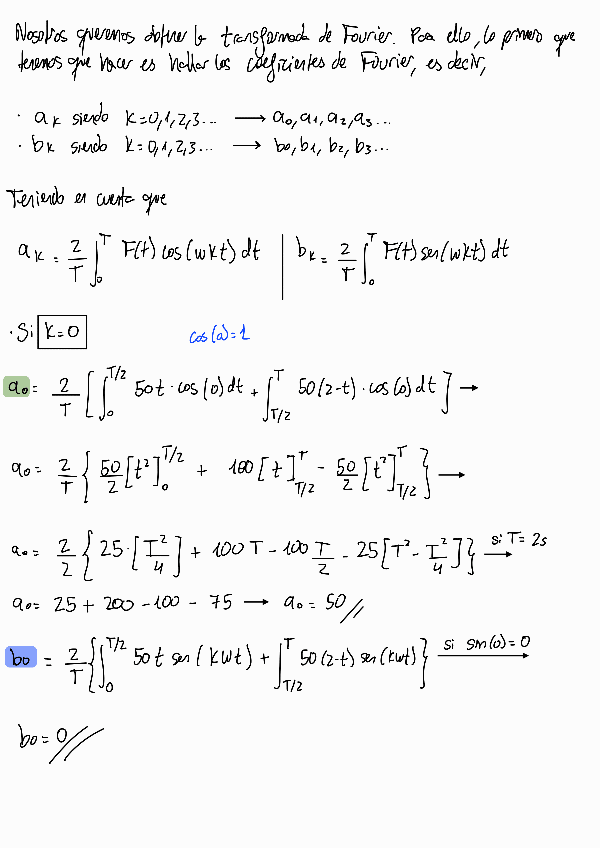 Nosotros queremos obtener la transformada de Fourier. Para ello, lo primero que
tenemos que hacer es hallar los coeficientes de Fourier, es decir,
· aₖ siendo K=0,1,2,3... ⟶ a₀,a₁,a₂,a₃...
· bₖ siendo K=0,1,2,3... ⟶ b₀,b₁,b₂,b₃...
Teniendo en cuenta que
aₖ = 2/T ∫₀ᵀ F(t) cos(wkt) dt | bₖ = 2/T ∫₀ᵀ F(t) sen(wkt) dt
· Si K=0 cos(0)=1
a₀ = 2/T [ ∫₀^{T/2} 50t · cos(0) dt + ∫_{T/2}^T 50(2-t) · cos(0) dt ] →
a₀ = 2/T { 50/2 [t²]₀^{T/2} + 100 [t]_{T/2}^T - 50/2 [t²]_{T/2}^T } →
a₀ = 2/2 { 25 · [T²/4] + 100T - 100 T/2 - 25 [T² - T²/4] } si T=2s →
a₀ = 25 + 200 - 100 - 75 → a₀ = 50 //
b₀ = 2/T { ∫₀^{T/2} 50t sen(kwt) + ∫_{T/2}^T 50(2-t) sen(kwt) } si sin(0)=0 →
b₀ = 0 //